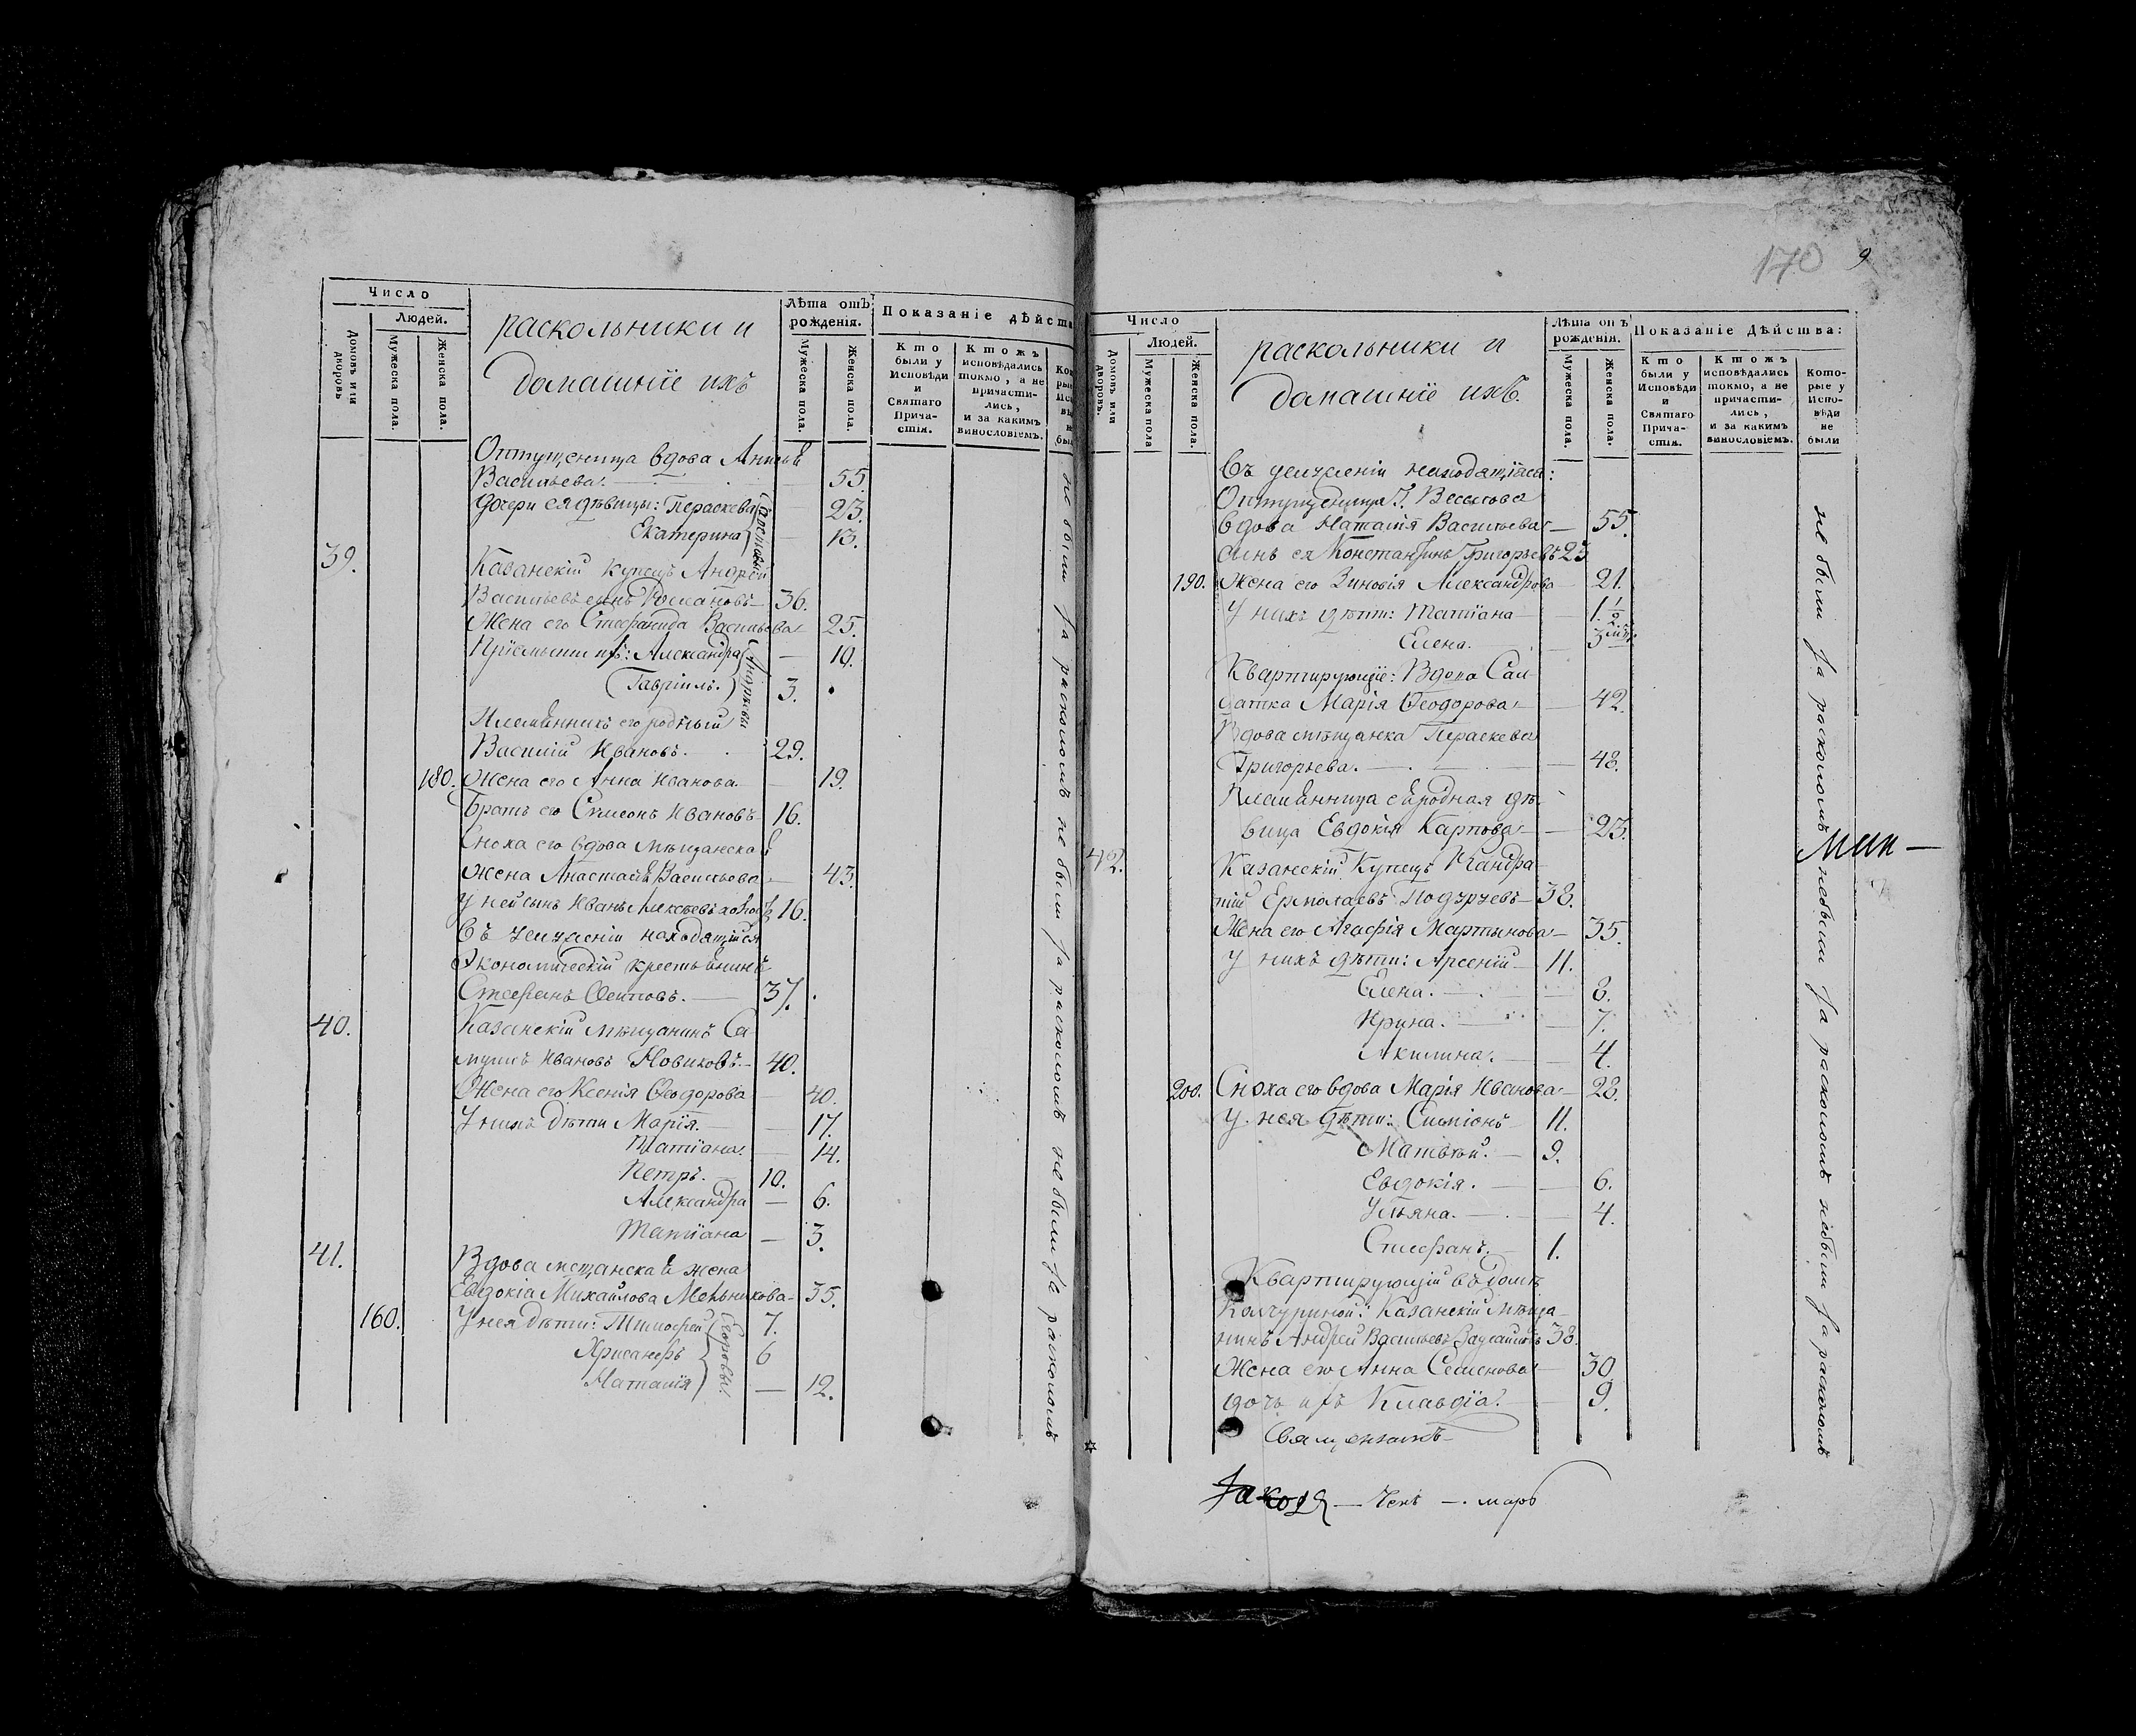 Число
Людей.
Домовъ или дворовъ
Мужеска пола.
Женска пола.
раскольники и
домашніе ихъ
Лѣта отъ рожденія.
Мужеска пола.
Женска пола.
Показаніе дѣйст
Кто были у Исповѣди и Святаго Прича- стія.
Ктожъ исповѣдались токмо, а не причасти- лись, и за какимъ винословіемъ.
Отпущеница вдова
Васильева. 55.
дочери ея дѣвицы: Параскева 23.
Екатерина 13.
39. Казанскій купецъ Андрей
Васильевъ сынъ Романовъ 36.
Жена его Стефанида Васильева 25.
Пріемыши ихъ: Александра 19.
Гавріилъ. 3.
Племянникъ его родный
Василій Ивановъ. 29.
180. Жена его Анна Иванова. 19.
Братъ его Симеонъ Ивановъ 16.
Сноха его вдова мѣщанская
жена Анастасія Васильева 43.
У ней сынъ Иванъ 16.
Въ услуженіи находящійся
Экономическій крестьянинъ
Стефанъ Осиповъ. 37.
40. Казанскій мѣщанинъ Са
муилъ Ивановъ Новиковъ. 40.
Жена его Ксенія Ѳеодорова 40.
У нихъ дѣти Марія. 17.
Татіана. 14.
Петръ. 10.
Александра 6.
Татіана 3.
41. Вдова мѣщанская жена
Евдокія Михайлова Мельникова 35.
160. У нея дѣти: Тимофей 7.
Хрисанфъ 6
Наталія 12.
Егоровы
не были за расколомъ не были за расколомъ не были за расколомъ
170 9
Число
Людей.
Домовъ или дворовъ.
Мужеска пола
Женска пола.
раскольники и
домашніе ихъ.
Лѣта отъ рожденія.
Мужеска пола.
Женска пола.
Показаніе Дѣйства:
Кто были у Исповѣди и Святаго Прича- стія.
Ктожъ исповѣдались токмо, а не причасти- лись, и за какимъ винословіемъ.
Кото- рые у Испо- вѣди не были
Въ услуженіи находящіяся:
Отпущеница Г. Веселова
вдова Наталія Васильева 55.
сынъ ея Константинъ Григорьевъ 25
190. Жена его Зиновія Александрова 21.
У нихъ дѣти: Татіана 1 1/2.
Елена. 3
Квартирующіе: Вдова Сал
датка Марія Ѳеодорова 42.
Вдова мѣщанка Параскева
Григорьева. 48.
Племянница ея родная дѣ
вица Евдокія Карпова 23.
42. Казанскій Купецъ Кандра
тій Ермолаевъ 38.
Жена его Агафія Мартынова 35.
У нихъ дѣти: Арсеній 11.
Елена. 8.
Ирина. 7.
Акилина. 4.
200. Сноха его вдова Марія Иванова 28.
У нея дѣти: Симіонъ 11.
Матвей. 9.
Евдокія. 6.
Ульяна. 4.
Стефанъ. 1.
Квартирующій въ домѣ
Казанскій мѣща
нинъ Андрей Васильевъ 38.
Жена его Анна Семенова 30.
дочь ихъ Клавдіа. 9.
Священникъ
не были за расколомъ не были за расколомъ не были за расколомъ